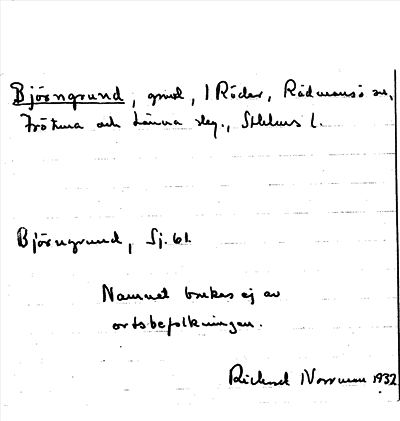 Björngrund, grund, I Röder, Rådmansö sn,
Frötuna och Länna slg., Sthlms l.
Björngrund, Sj. 61
Namnet brukas ej av
ortsbefolkningen.
Rickard Norrman 1932